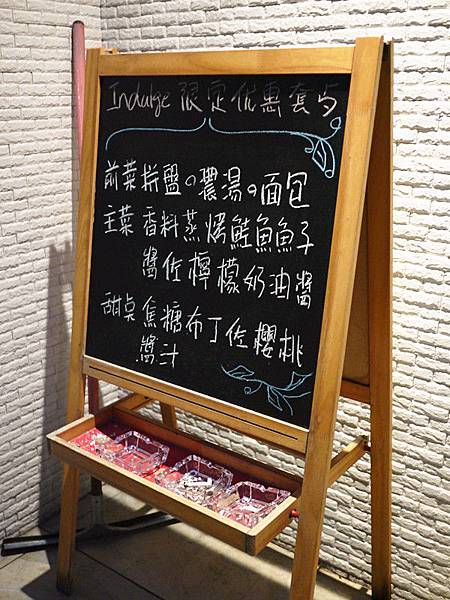 Indulge 限定优惠套与
前菜拚盤。濃湯。面包
主菜 香料蒸烤鮭魚魚子
醬佐檸檬奶油醬
甜桌 焦糖布丁佐櫻桃
醬汁